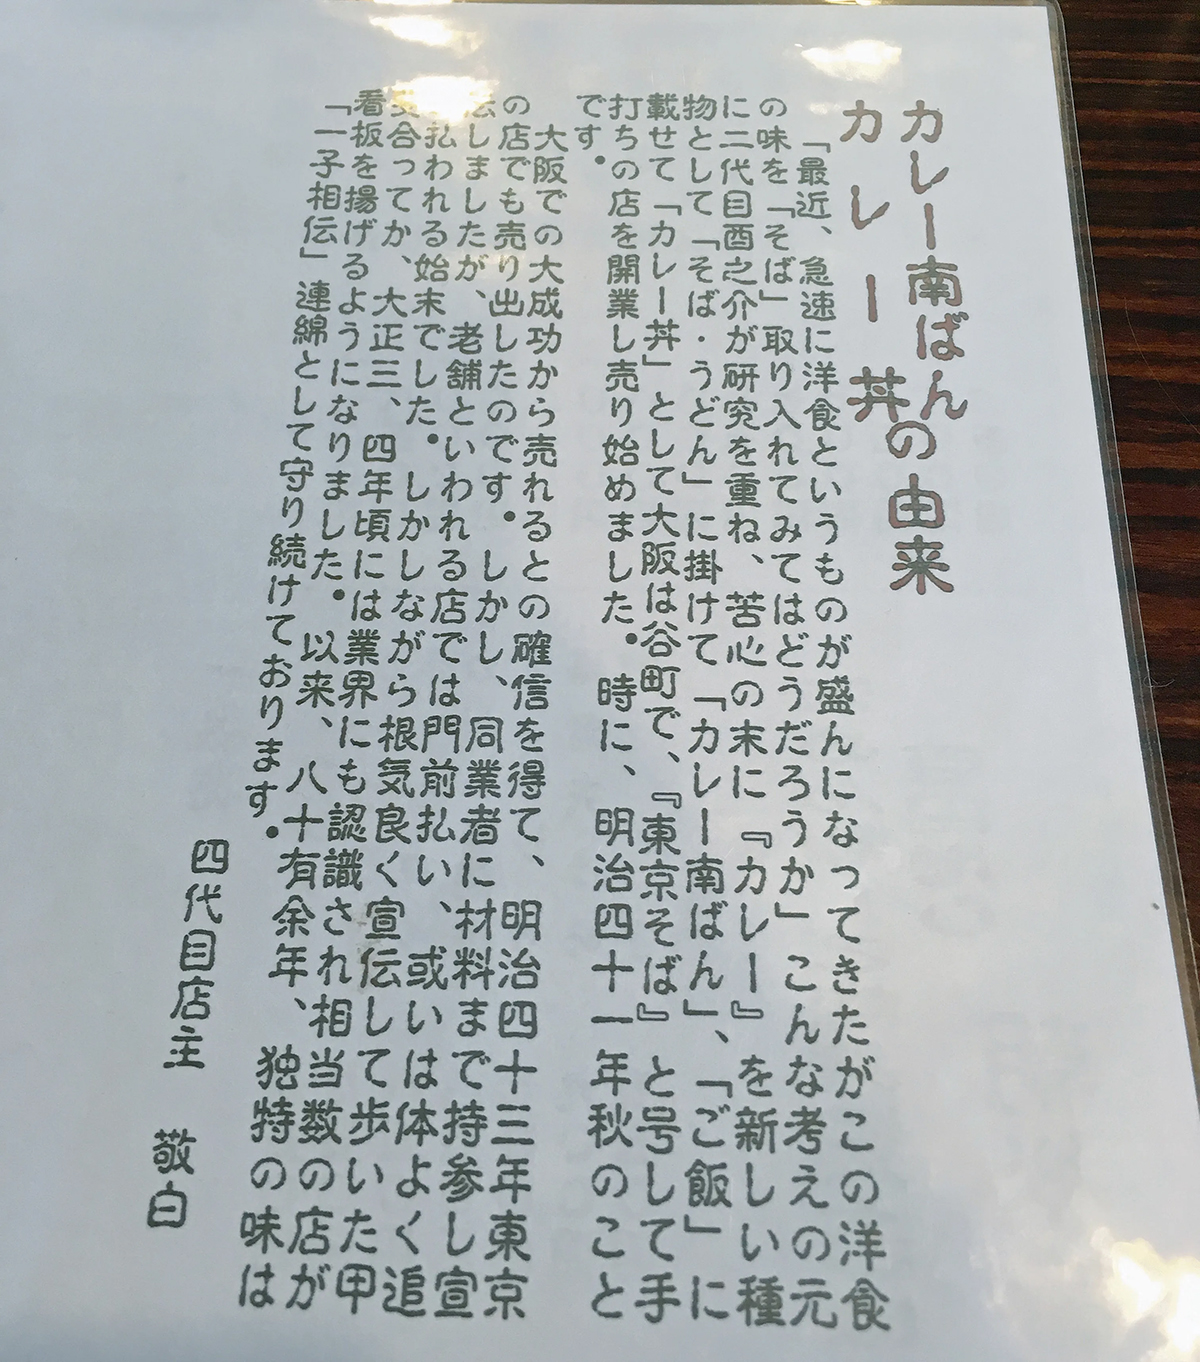 カレー南ばん
カレー丼
の由来
「最近、急速に洋食というものが盛んになってきたがこの洋食
の味を「そば」取り入れてみてはどうだろうか」こんな考えの元
に二代目酉之介が研究を重ね、苦心の末に『カレー』を新しい種
物として「そば・うどん」に掛けて「カレー南ばん」、「ご飯」に
載せて「カレー丼」として大阪は谷町で、『東京そば』と号して手
打ちの店を開業し売り始めました。時に、明治四十一年秋のこと
です。
大阪での大成功から売れるとの確信を得て、明治四十三年東京
の店でも売り出したのです。しかし、同業者に材料まで持参し宣
伝しましたが、老舗といわれる店では門前払い、或いは体よく追
払われる始末でした。しかしながら根気良く宣伝して歩いた甲
斐合ってか、大正三、四年頃には業界にも認識され相当数の店が
看板を揚げるようになりました。以来、八十有余年、独特の味は
「一子相伝」連綿として守り続けております。
四代目店主　敬白